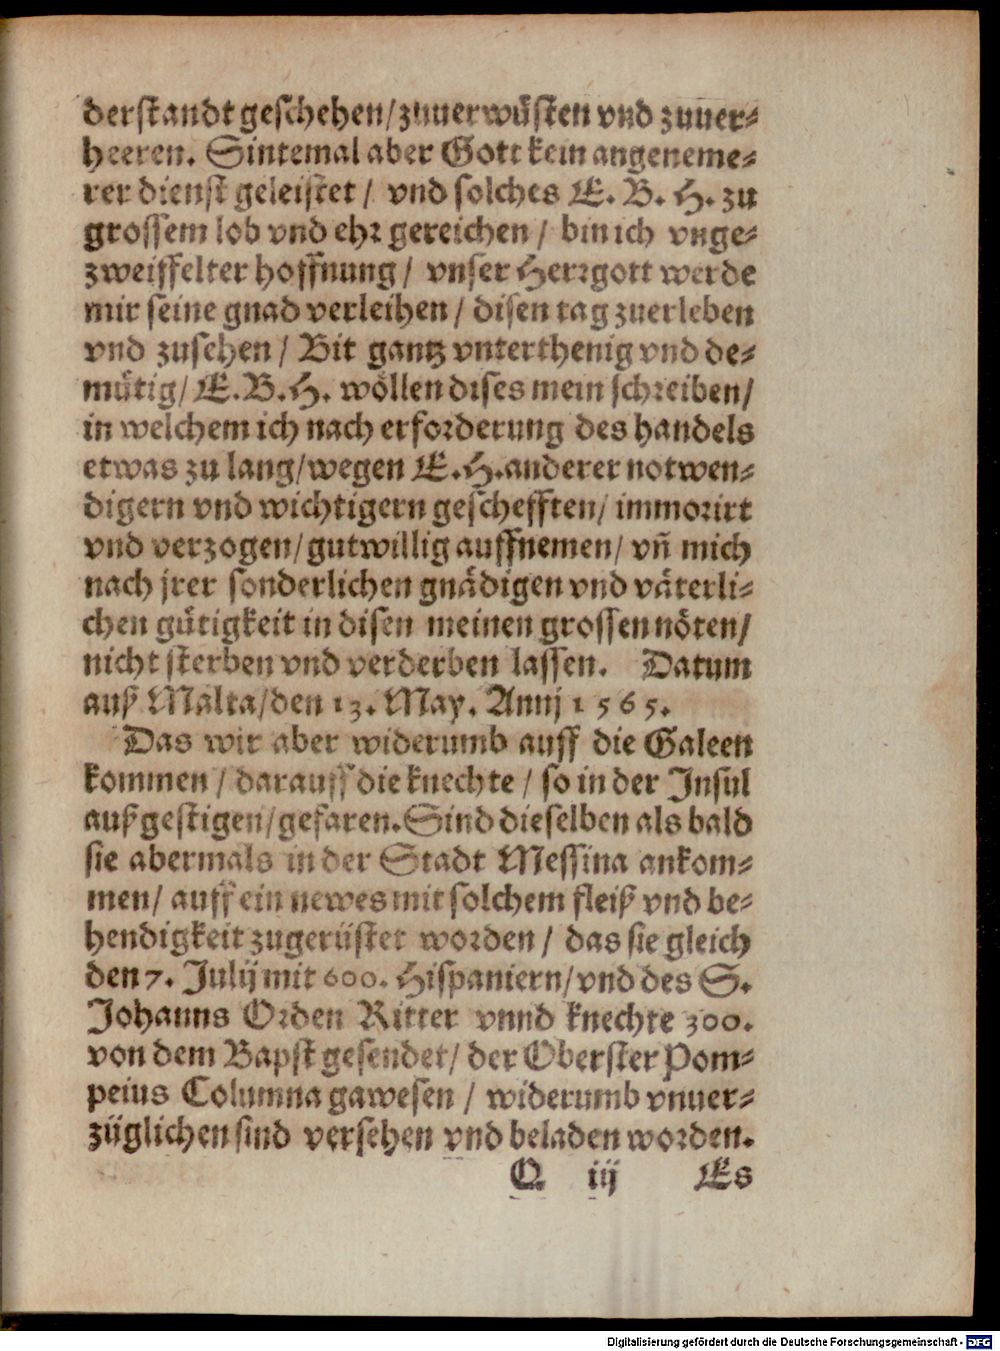 derstandt geschehen/zuuerwüsten vnd zuuer-
heeren. Sintemal aber Gott kein angeneme-
rer dienst geleistet / vnd solches E. B. H. zu
grossem lob vnd ehr gereichen / bin ich vnge-
zweiffelter hoffnung / vnser Herrgott werde
mir seine gnad verleihen / disen tag zuerleben
vnd zusehen / Bit gantz vnterthenig vnd de-
mütig/ E.B.H. wöllen dises mein schreiben/
in welchem ich nach erforderung des handels
etwas zu lang/wegen E.H.anderer notwen-
digern vnd wichtigern geschefften/ immorirt
vnd verzogen/gutwillig auffnemen/ vñ mich
nach jrer sonderlichen gnädigen vnd väterli-
chen gütigkeit in disen meinen grossen nöten/
nicht sterben vnd verderben lassen. Datum
auß Malta/den 13. May. Annj 1565.
Das wir aber widerumb auff die Galeen
kommen / darauff die knechte / so in der Insul
außgestigen/gefaren.Sind dieselben als bald
sie abermals in der Stadt Messina ankom-
men/ auff ein newes mit solchem fleiß vnd be-
hendigkeit zugerüstet worden / das sie gleich
den 7. Julij mit 600. Hispaniern/vnd des S.
Johanns Orden Ritter vnnd knechte 300.
von dem Bapst gesendet/ der Oberster Pom-
peius Columna gawesen / widerumb vnuer-
züglichen sind versehen vnd beladen worden.
Q iij Es
Digitalisierung gefördert durch die Deutsche Forschungsgemeinschaft - DFG